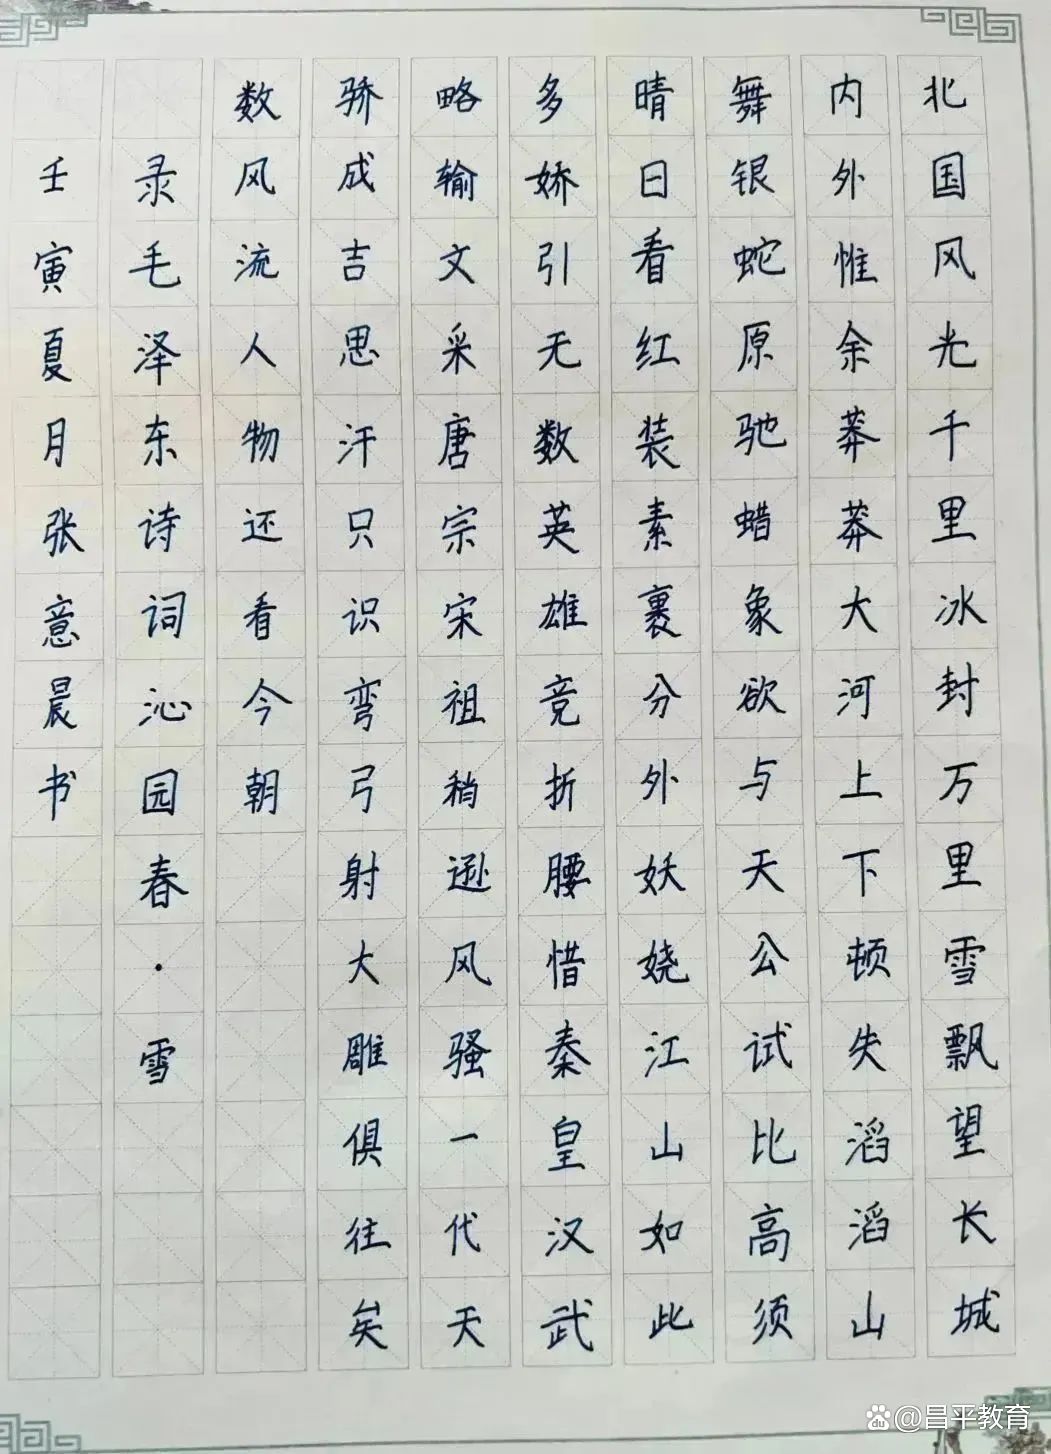 北国风光千里冰封万里雪飘望长城
内外惟余莽莽大河上下顿失滔滔山
舞银蛇原驰蜡象欲与天公试比高须
晴日看红装素裹分外妖娆江山如此
多娇引无数英雄竞折腰惜秦皇汉武
略输文采唐宗宋祖稍逊风骚一代天
骄成吉思汗只识弯弓射大雕俱往矣
数风流人物还看今朝
录毛泽东诗词沁园春·雪
壬寅夏月张意晨书
du @昌平教育